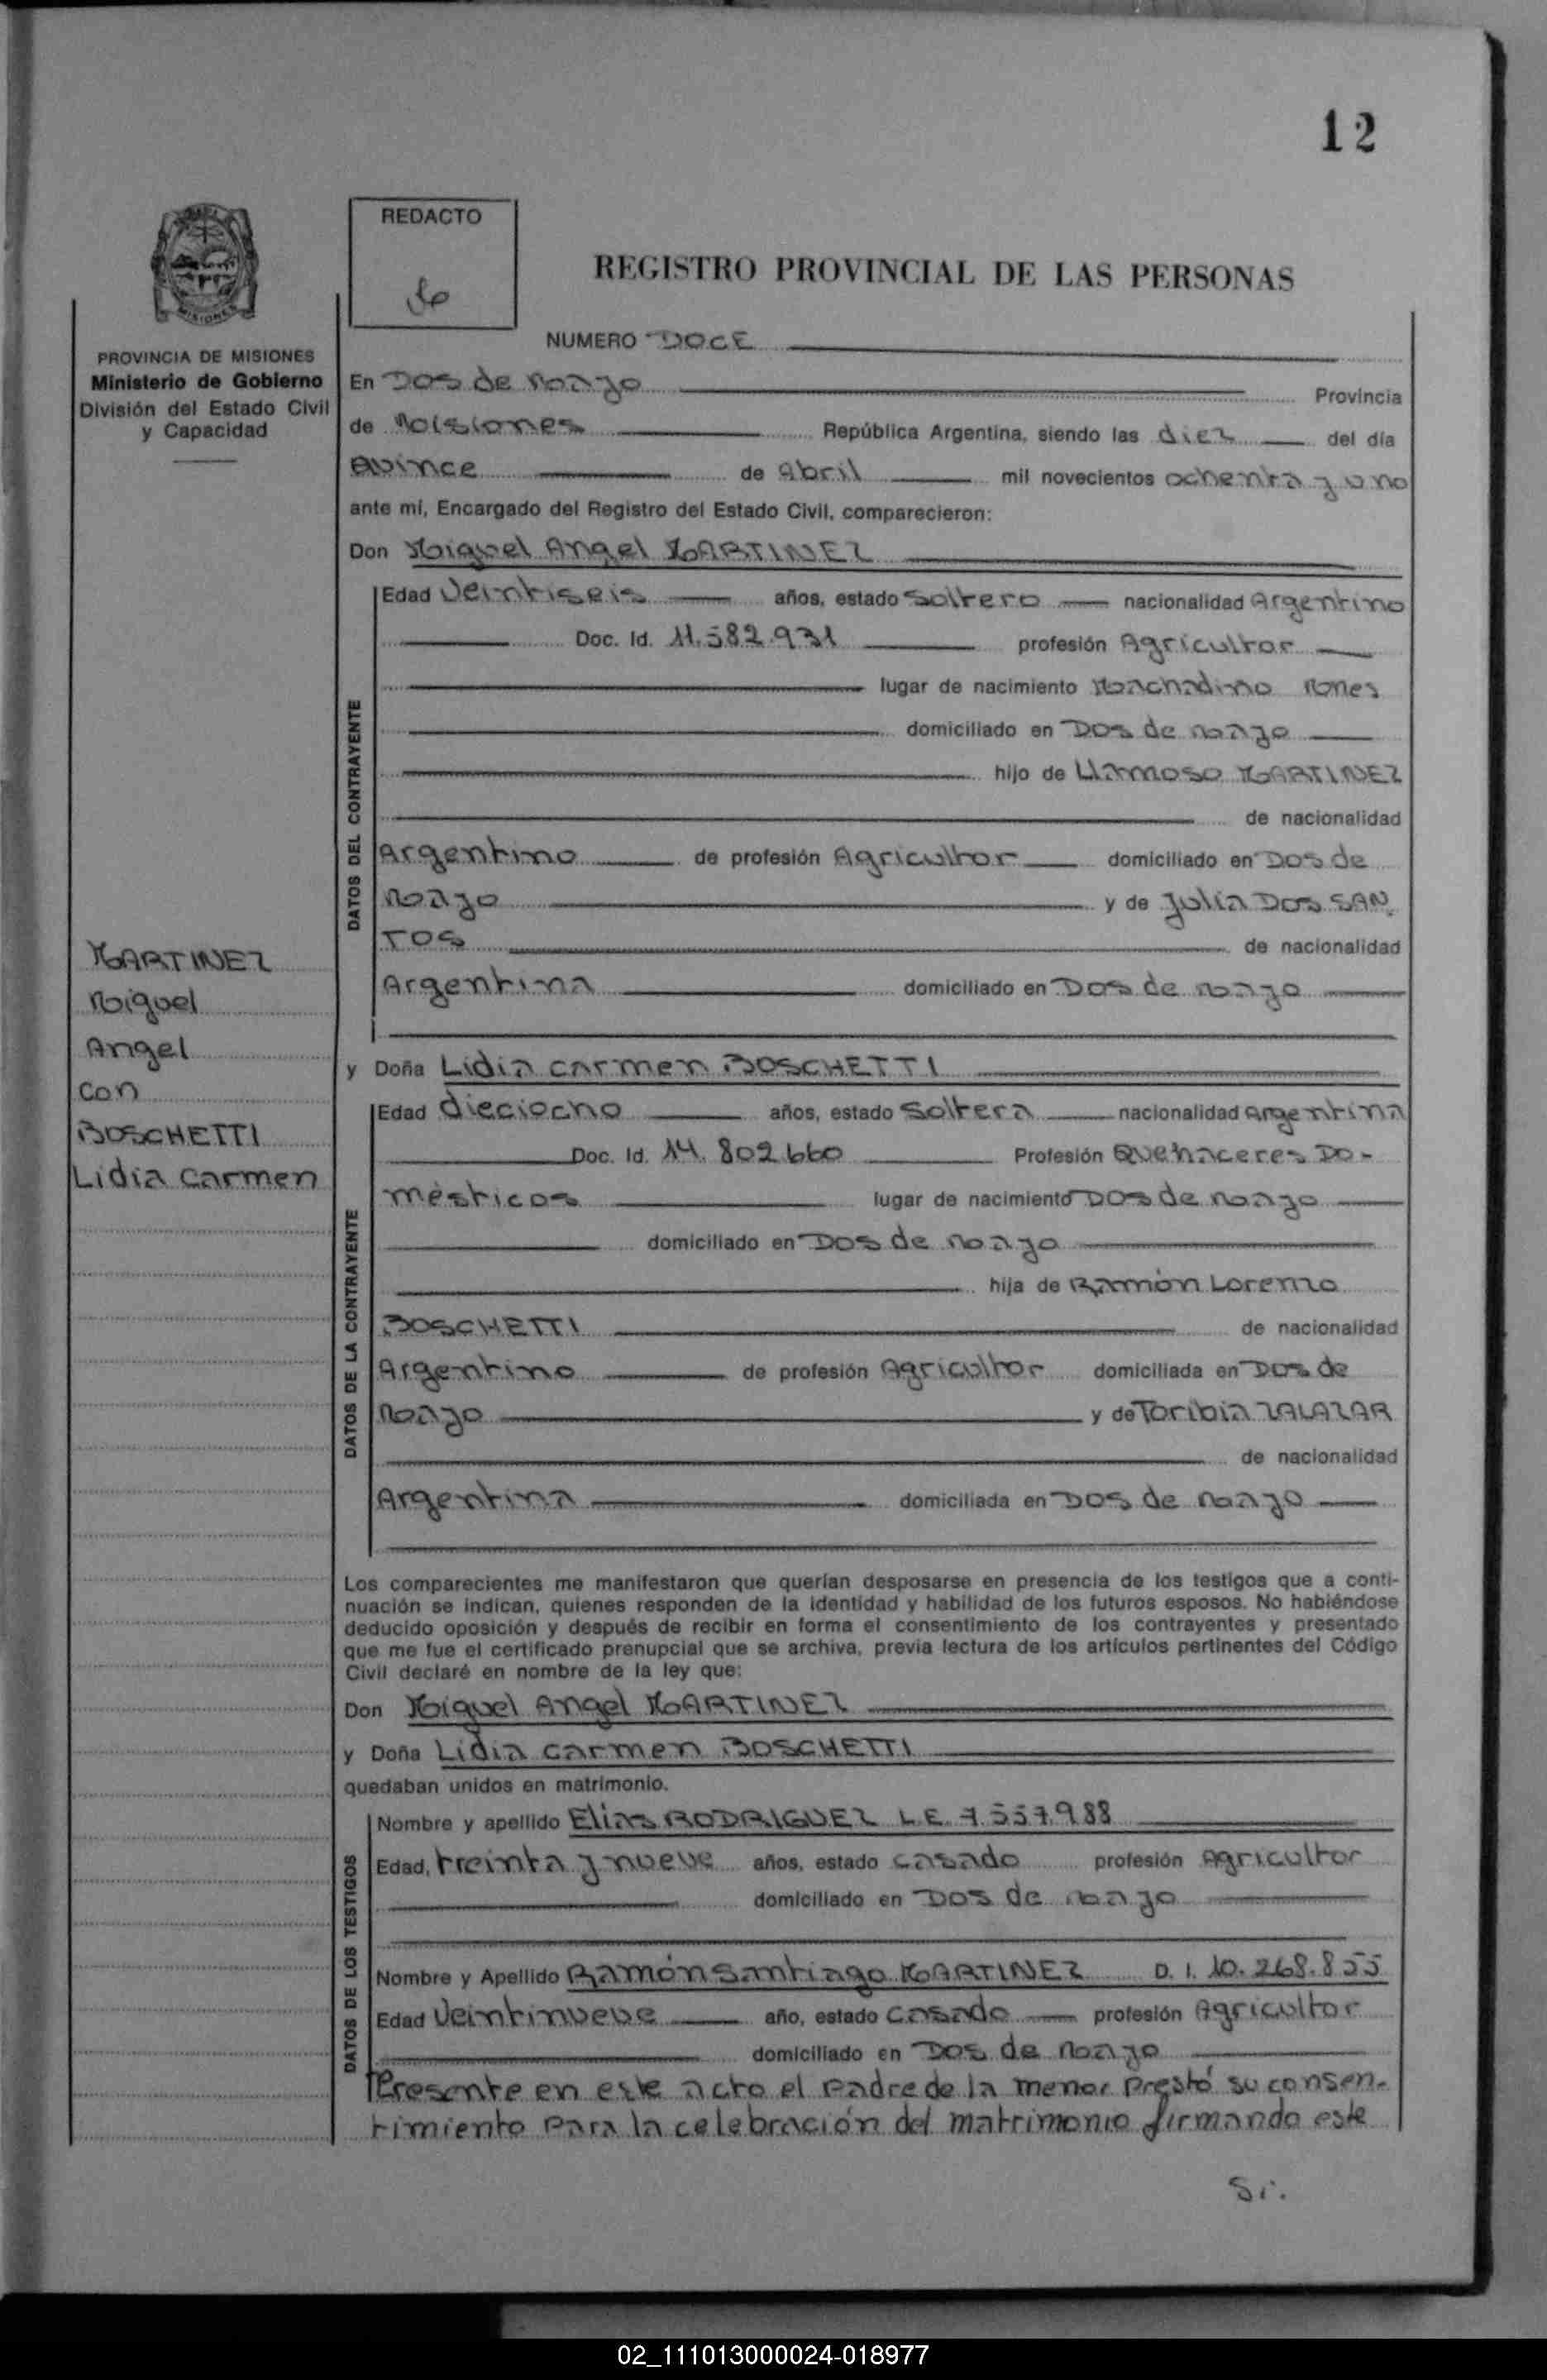 12
REDACTO
REGISTRO PROVINCIAL DE LAS PERSONAS
MISIONES
PROVINCIA DE MISIONES
Ministerio de Gobierno
División del Estado Civil
y Capacidad
NUMERO DOCE
En Dos de mayo Provincia
de Misiones República Argentina, siendo las diez del día
Quince de Abril mil novecientos ochenta y uno
ante mí, Encargado del Registro del Estado Civil, comparecieron:
Don Miguel Angel MARTINEZ
DATOS DEL CONTRAYENTE
Edad Veintiseis años, estado Soltero nacionalidad Argentino
Doc. Id. 11.582.931 profesión Agricultor
lugar de nacimiento Machadino Mnes
domiciliado en Dos de mayo
hijo de Llamoso MARTINEZ
de nacionalidad
Argentino de profesión Agricultor domiciliado en Dos de
Mayo y de Julia DOS SAN
TOS de nacionalidad
Argentina domiciliado en Dos de mayo
MARTINEZ
Miguel
Angel
con
BOSCHETTI
Lidia Carmen
y Doña Lidia carmen BOSCHETTI
DATOS DE LA CONTRAYENTE
Edad dieciocho años, estado Soltera nacionalidad Argentina
Doc. Id. 14.802660 Profesión Quehaceres Do-
mésticos lugar de nacimiento Dos de mayo
domiciliado en Dos de mayo
hija de Ramón Lorenzo
BOSCHETTI de nacionalidad
Argentino de profesión Agricultor domiciliada en Dos de
Mayo y de Toribia ZALAZAR
de nacionalidad
Argentina domiciliada en Dos de mayo
Los comparecientes me manifestaron que querían desposarse en presencia de los testigos que a conti-
nuación se indican, quienes responden de la identidad y habilidad de los futuros esposos. No habiéndose
deducido oposición y después de recibir en forma el consentimiento de los contrayentes y presentado
que me fue el certificado prenupcial que se archiva, previa lectura de los artículos pertinentes del Código
Civil declaré en nombre de la ley que:
Don Miguel Angel MARTINEZ
y Doña Lidia carmen BOSCHETTI
quedaban unidos en matrimonio.
DATOS DE LOS TESTIGOS
Nombre y apellido Elias RODRIGUEZ L.E. 7.557.988
Edad, treinta y nueve años, estado casado profesión Agricultor
domiciliado en Dos de mayo
Nombre y Apellido Ramón Santiago MARTINEZ D.I. 10.268.855
Edad Veintinueve año, estado casado profesión Agricultor
domiciliado en Dos de mayo
Presente en este acto el padre de la menor prestó su consen-
timiento para la celebración del matrimonio firmando este
Si.
02_111013000024-018977